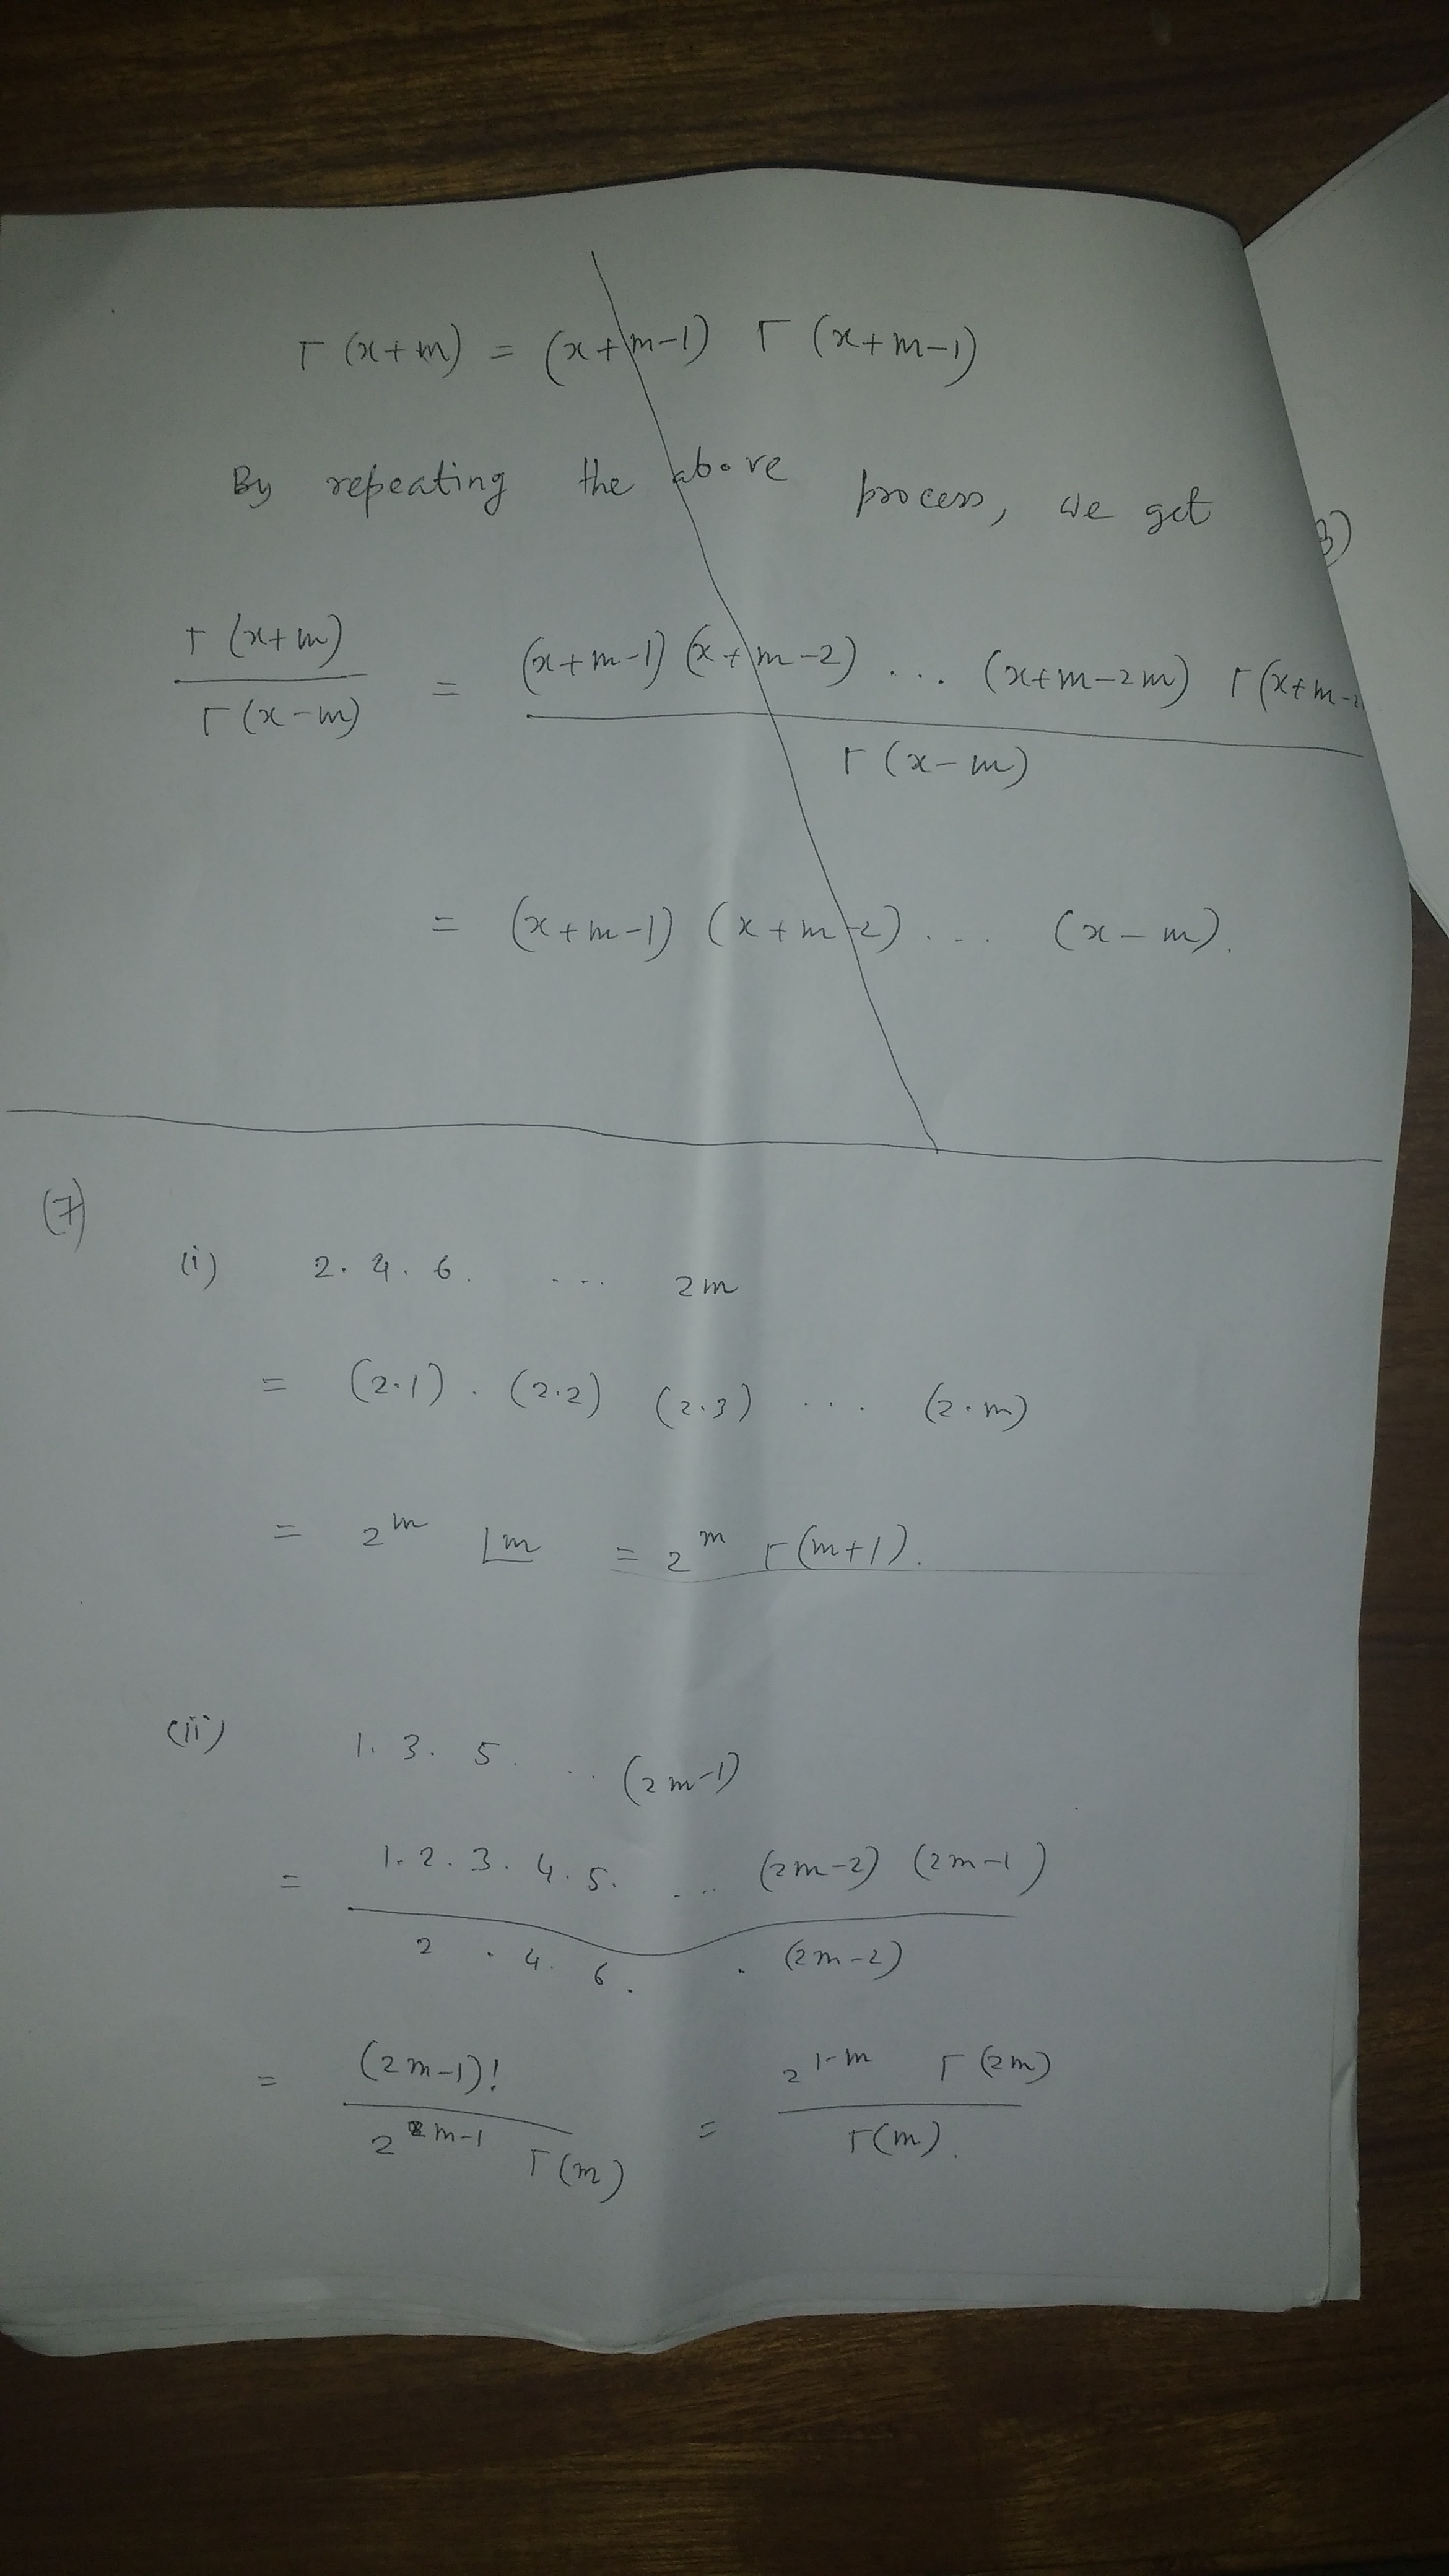 Γ(x+m) = (x+m-1) Γ(x+m-1)
By repeating the above process, we get
3)
Γ(x+m) / Γ(x-m) = (x+m-1)(x+m-2) ... (x+m-2m) Γ(x+m-2 / Γ(x-m)
= (x+m-1) (x+m-2) ... (x-m).
(7)
(i) 2. 4. 6. ... 2m
= (2.1) . (2.2) (2.3) ... (2.m)
= 2^m |m = 2^m Γ(m+1).
(ii) 1. 3. 5. .. (2m-1)
= 1. 2. 3. 4. 5. ... (2m-2) (2m-1) / 2 . 4. 6. . (2m-2)
= (2m-1)! / 2^{m-1} Γ(m) = 2^{1-m} Γ(2m) / Γ(m).